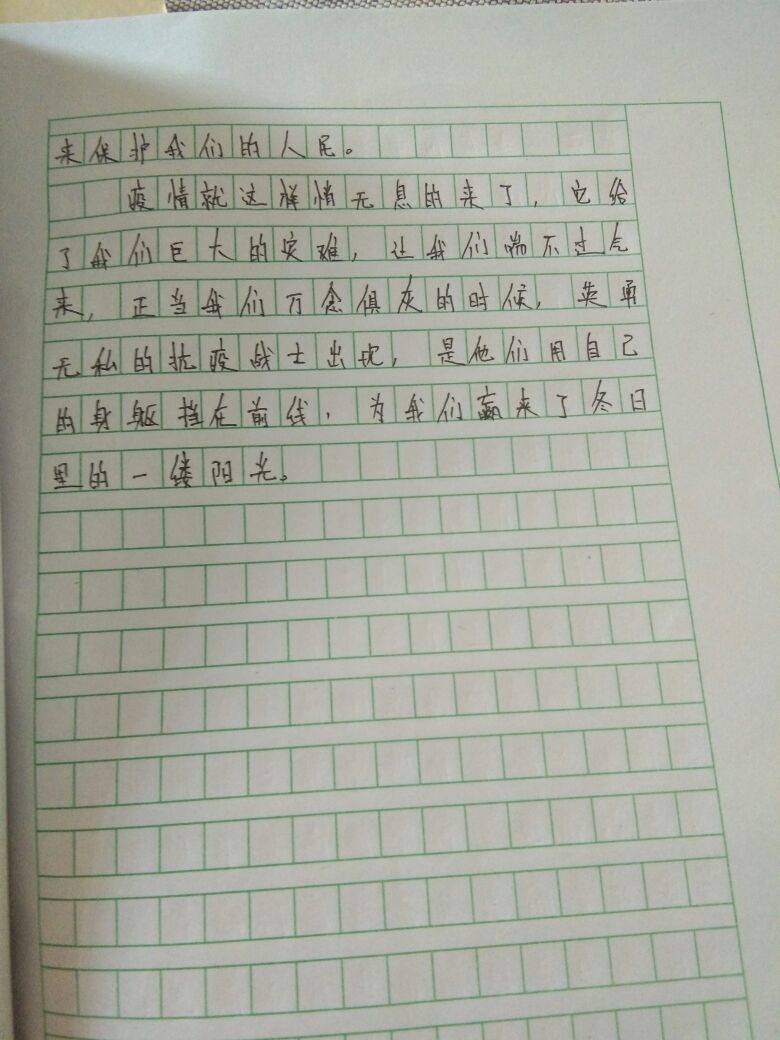 来保护我们的人民。
疫情就这样悄无息的来了，它给
了我们巨大的灾难，让我们喘不过气
来，正当我们万念俱灰的时候，英勇
无私的抗疫战士出现，是他们用自己
的身躯挡在前线，为我们赢来了冬日
里的一缕阳光。